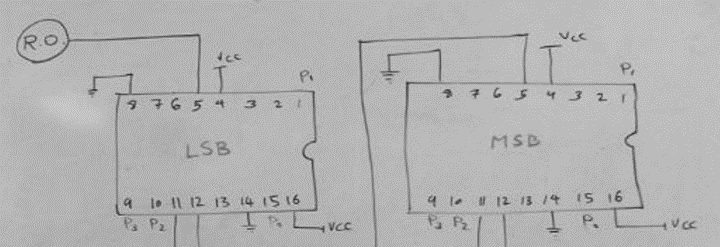 R.O.
Vcc
P₁
8 7 6 5 4 3 2 1
LSB
9 10 11 12 13 14 15 16
P₃ P₂ P₀
VCC
Vcc
P₁
8 7 6 5 4 3 2 1
MSB
9 10 11 12 13 14 15 16
P₃ P₂ P₀
VCC